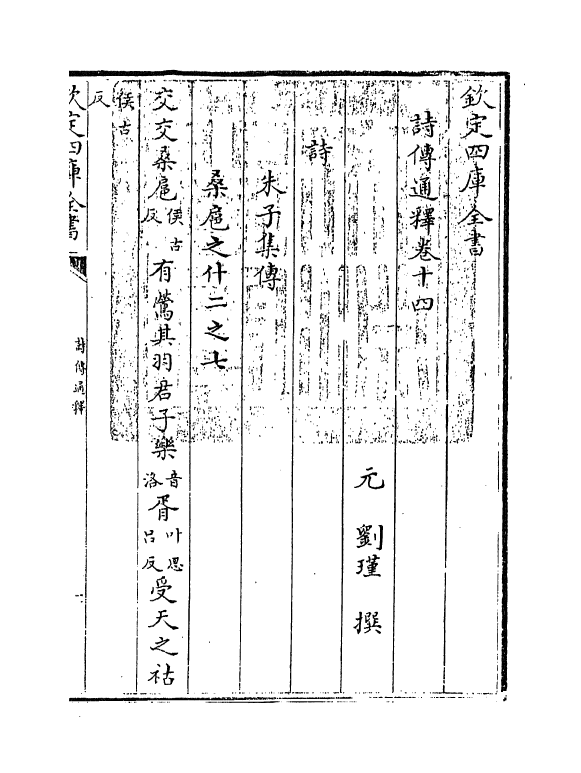 欽定四庫全書
詩傳通釋卷十四
元 劉瑾 撰
詩
朱子集傳
桑扈之什二之七
交交桑扈侯古反有鶯其羽君子樂音洛胥叶思呂反受天之祜
侯古反
欽定四庫全書
詩傳通釋
一